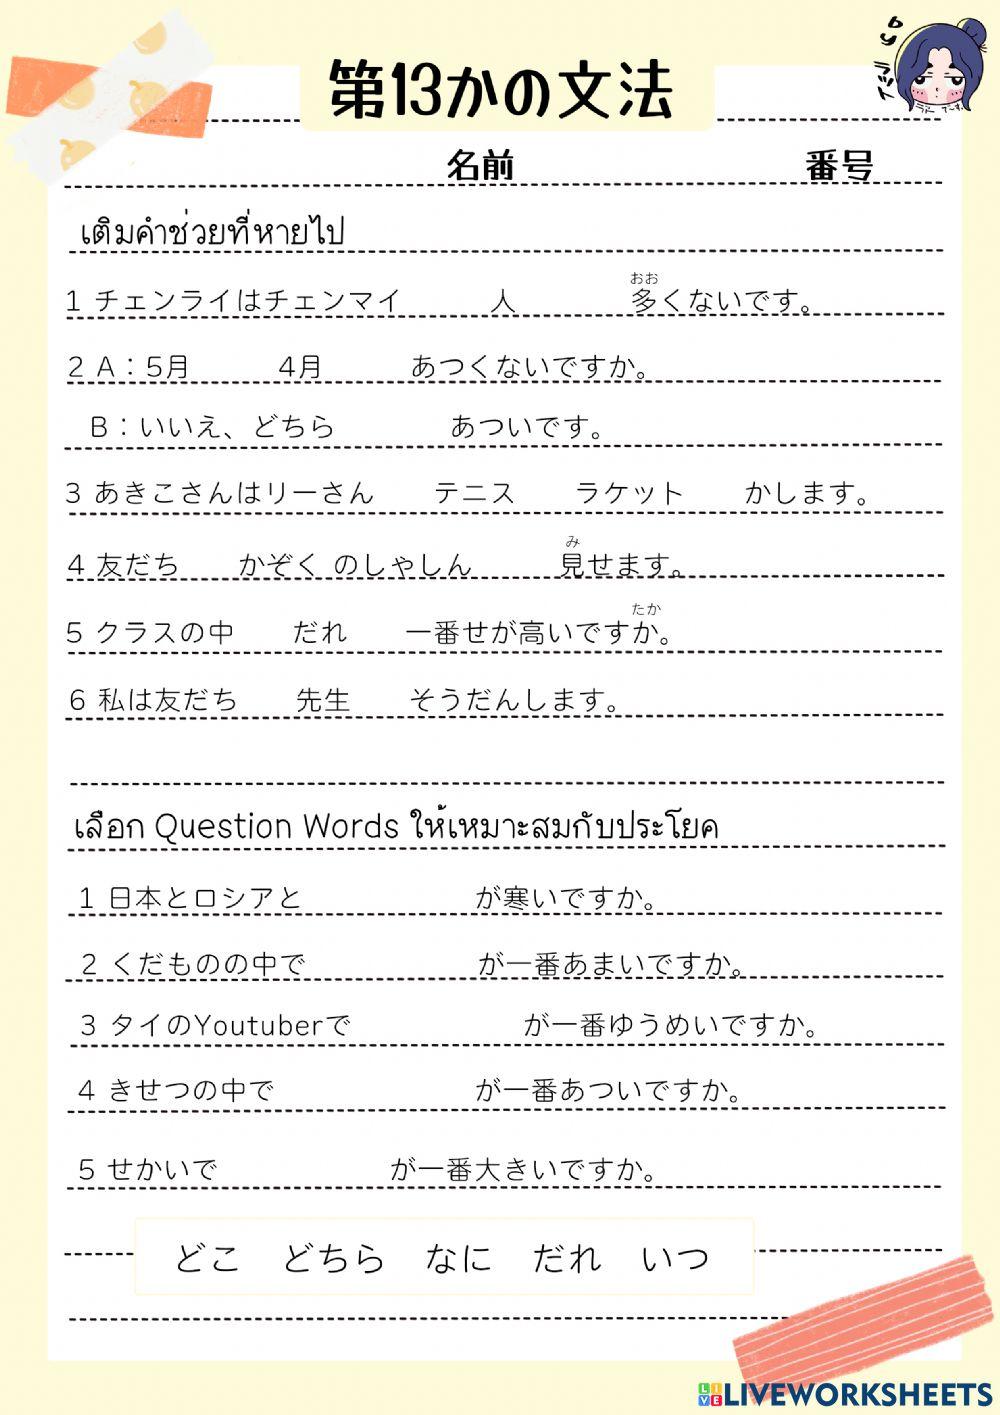 第13かの文法
by ラット
名前 番号
เติมคำช่วยที่หายไป
おお
1 チェンライはチェンマイ 人 多くないです。
2 A：5月 4月 あつくないですか。
B：いいえ、どちら あついです。
3 あきこさんはリーさん テニス ラケット かします。
み
4 友だち かぞく のしゃしん 見せます。
たか
5 クラスの中 だれ 一番せが高いですか。
6 私は友だち 先生 そうだんします。
เลือก Question Words ให้เหมาะสมกับประโยค
1 日本とロシアと が寒いですか。
2 くだものの中で が一番あまいですか。
3 タイのYoutuberで が一番ゆうめいですか。
4 きせつの中で が一番あついですか。
5 せかいで が一番大きいですか。
どこ どちら なに だれ いつ
LIVEWORKSHEETS